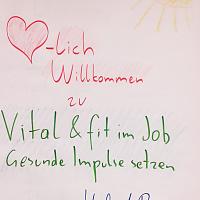 -lich
Willkommen
zu
Vital & fit im Job
Gesunde Impulse setzen